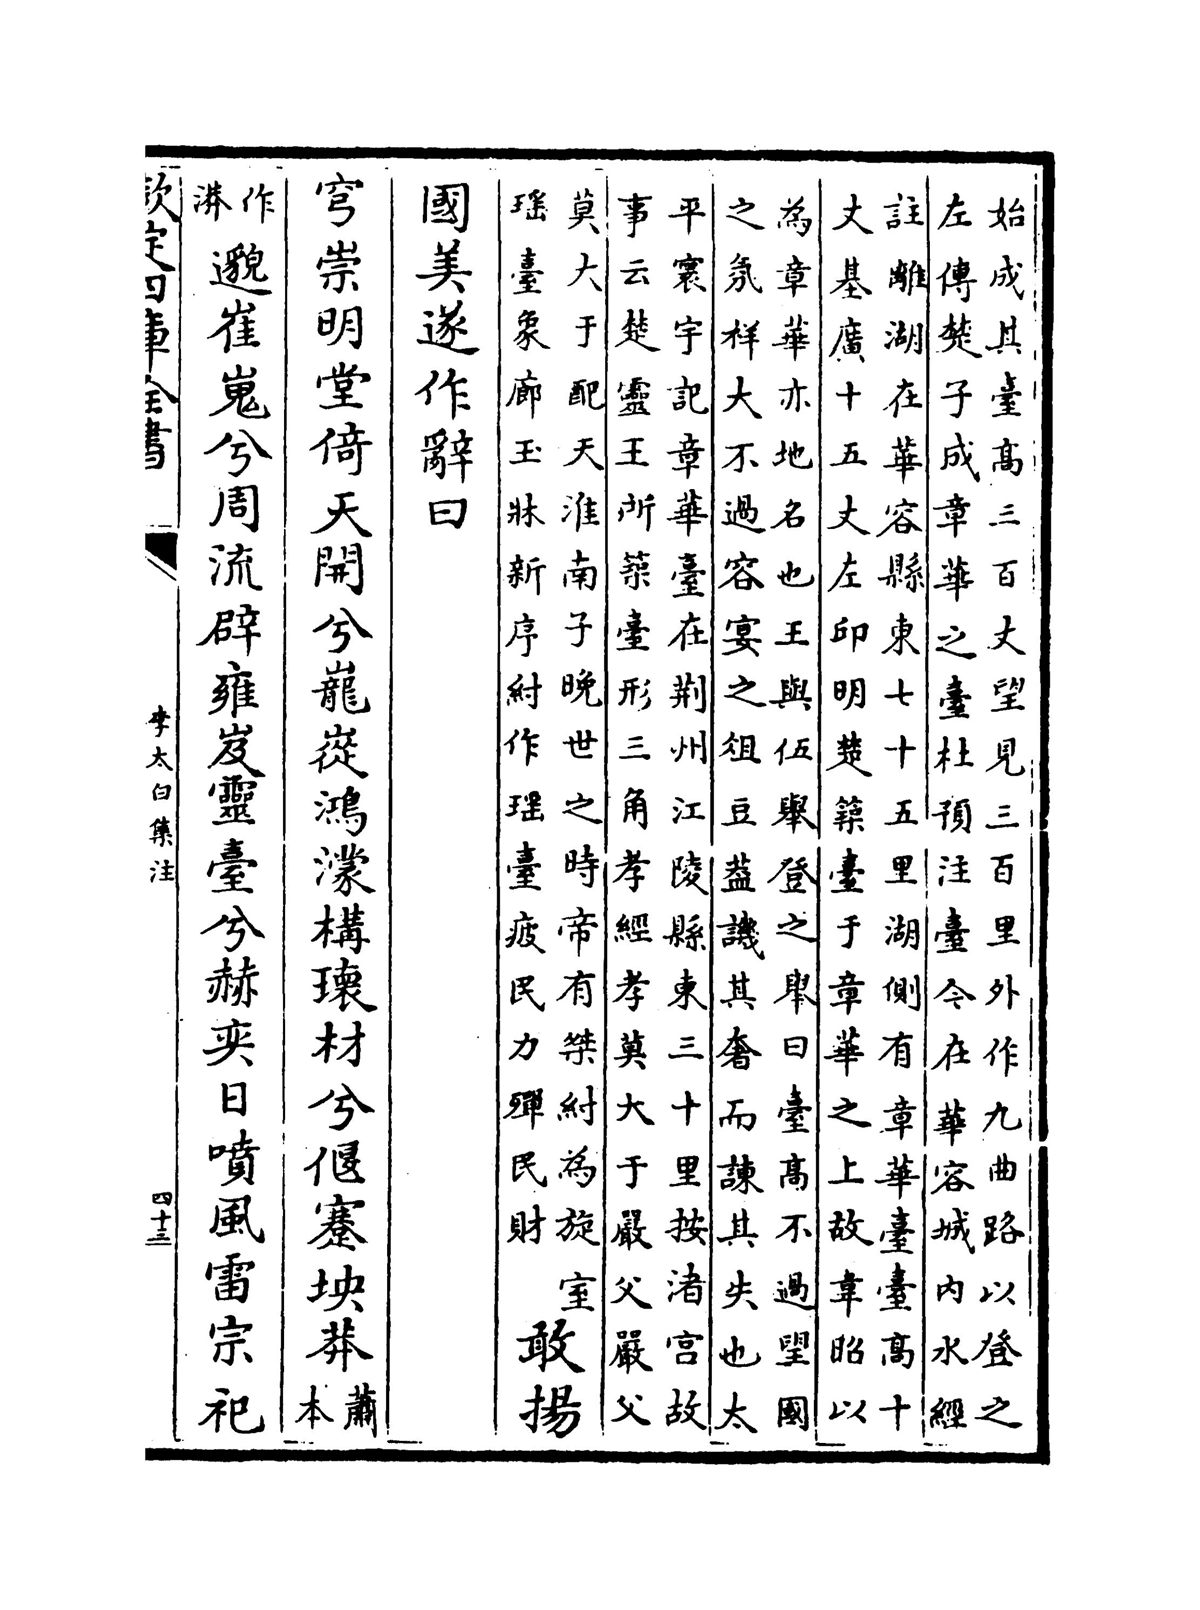 始成其臺高三百丈望見三百里外作九曲路以登之
左傳楚子成章華之臺杜預注臺今在華容城内水經
註離湖在華容縣東七十五里湖側有章華臺臺高十
丈基廣十五丈左邱明楚築臺于章華之上故韋昭以
為章華亦地名也王與伍舉登之舉曰臺高不過望國
之氛祥大不過容宴之俎豆葢譏其奢而諫其失也太
平寰宇記章華臺在荆州江陵縣東三十里按渚宫故
事云楚靈王所築臺形三角孝經孝莫大于嚴父嚴父
莫大于配天淮南子晚世之時帝有桀紂為旋室
瑶臺象廊玉牀新序紂作瑶臺疲民力殫民財
敢揚
國美遂作辭曰
穹崇明堂倚天開兮巃嵸鴻濛構瓌材兮偃蹇坱莽
蕭本
作漭
邈崔嵬兮周流辟雍岌靈臺兮赫奕日噴風雷宗祀
欽定四庫全書
李太白集注
四十三